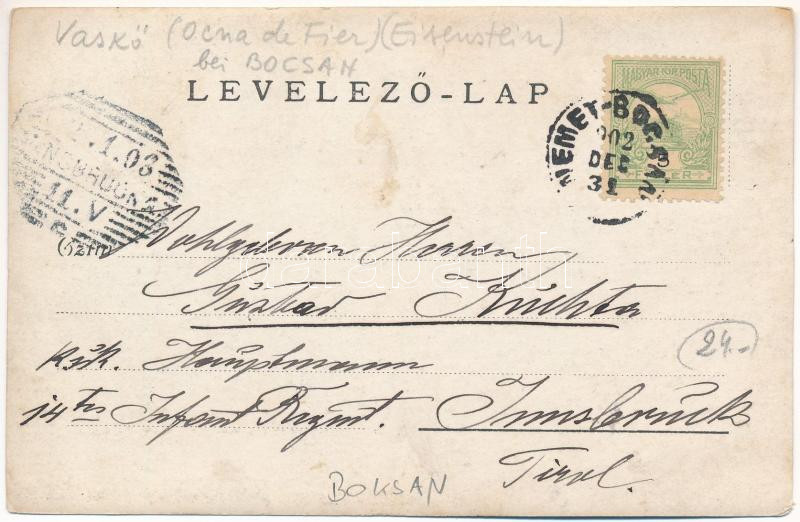 Vaskő (Ocna de Fier) (Eisenstein)
bei BOCSAN
LEVELEZŐ-LAP
MAGYAR KIR. POSTA
FILLÉR
NÉMET-BOGSÁN
902
DEC
31
1.03
INNSBRUCK
11.V
Wohlgeboren Herrn
Gustav Kuchta
k.u.k. Hauptmann
14tes Infant Regmt. Innsbruck
Tirol.
24.-
BOKSAN
darabanth